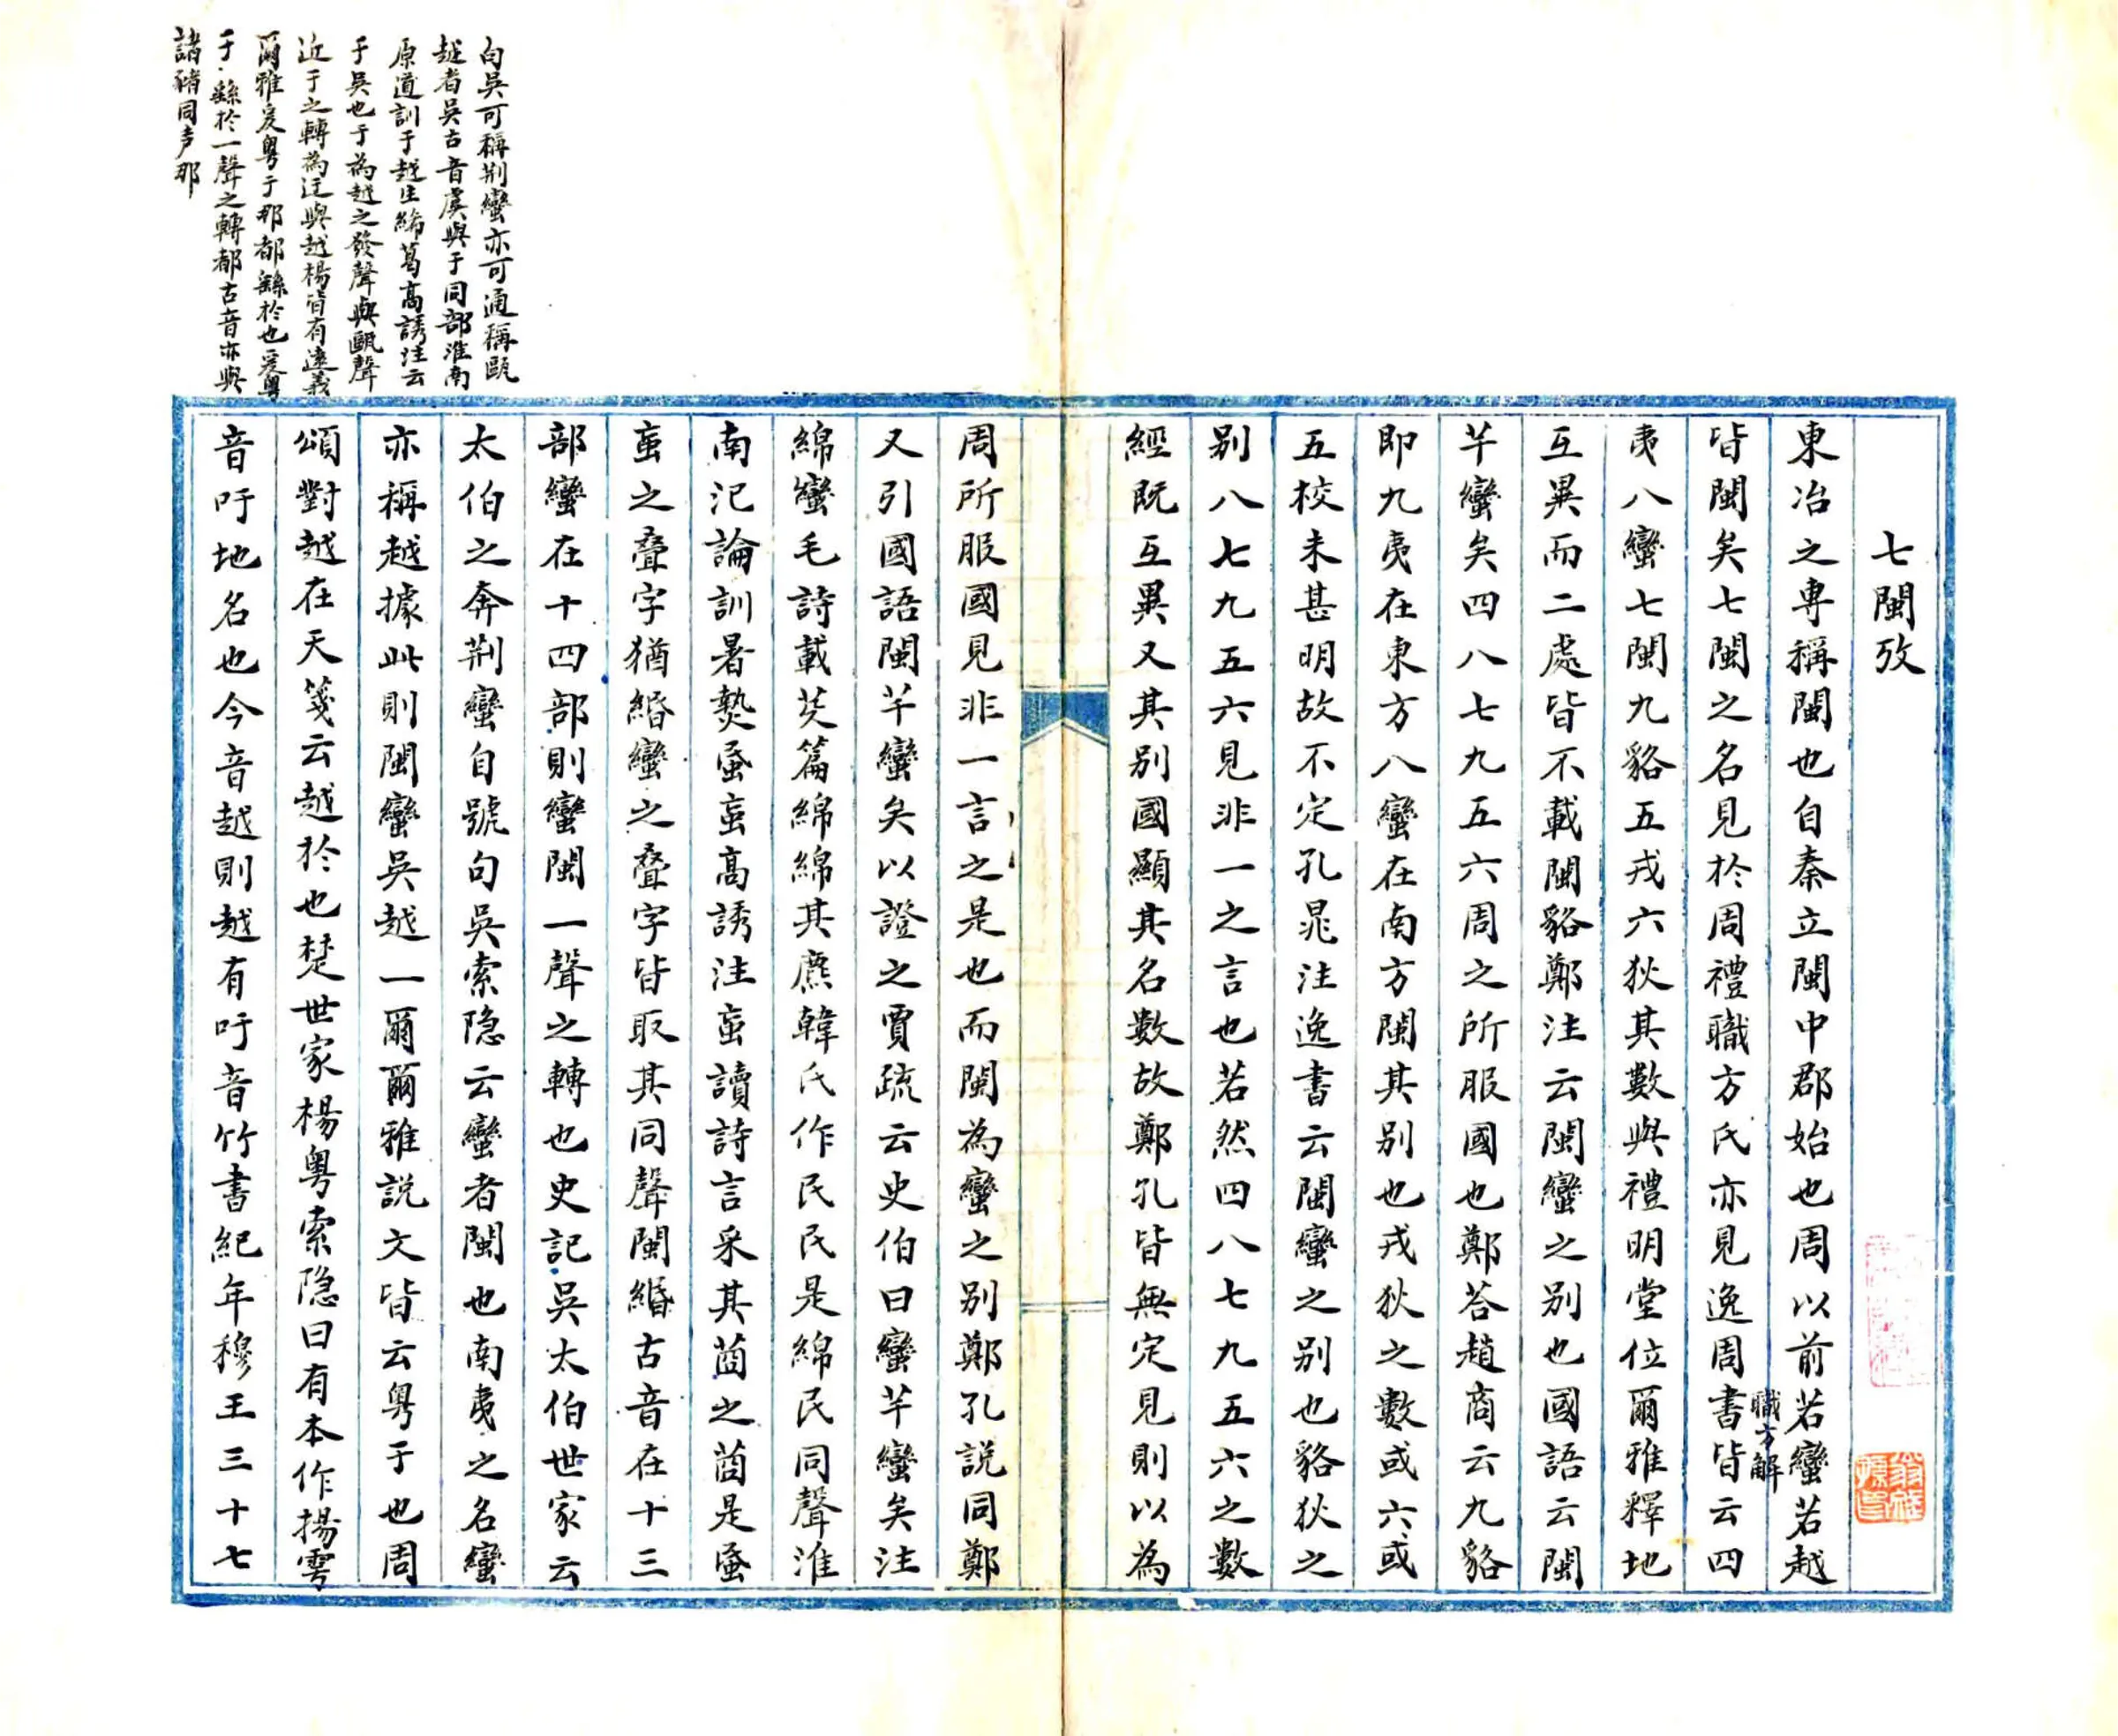 七閩攷
東冶之專稱閩也自秦立閩中郡始也周以前若蠻若越
皆閩矣七閩之名見於周禮職方氏亦見逸周書職方解皆云四
夷八蠻七閩九貉五戎六狄其數與禮明堂位爾雅釋地
互異而二處皆不載閩貉鄭注云閩蠻之別也國語云閩
芊蠻矣四八七九五六周之所服國也鄭荅趙商云九貉
即九夷在東方八蠻在南方閩其别也戎狄之數或六或
五校未甚明故不定孔晁注逸書云閩蠻之别也貉狄之
别八七九五六見非一之言也若然四八七九五六之數
經既互異又其别國顯其名數故鄭孔皆無定見則以為
周所服國見非一言之是也而閩為蠻之别鄭孔説同鄭
又引國語閩芊蠻矣以證之賈疏云史伯曰蠻芊蠻矣注
綿蠻毛詩載芟篇綿綿其麃韓氏作民民是綿民同聲淮
南氾論訓暑熱蚉蝱高誘注蝱讀詩言采其莔之莔是蚉
蝱之疊字猶緡蠻之疊字皆取其同聲閩緡古音在十三
部蠻在十四部則蠻閩一聲之轉也史記吳太伯世家云
太伯之奔荆蠻自號句吳索隐云蠻者閩也南夷之名蠻
亦稱越據此則閩蠻吳越一爾爾雅説文皆云粤于也周
頌對越在天箋云越於也楚世家楊粤索隐曰有本作揚雩
音吁地名也今音越則越有吁音竹書紀年穆王三十七
句吳可稱荆蠻亦可通稱甌
越者吳古音虞與于同部淮南
原道訓于越生絺葛高誘注云
于吳也于為越之發聲與甌聲
近于之轉為迂與越楊皆有遠義
爾雅爰粤于那都繇於也爰粤
于繇於一聲之轉都古音亦與
諸豬同声那